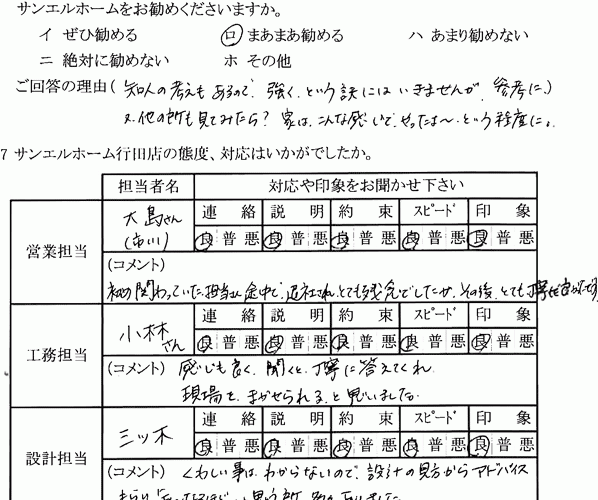 サンエルホームをお勧めくださいますか。
イ ぜひ勧める ロ まあまあ勧める ハ あまり勧めない
ニ 絶対に勧めない ホ その他
ご回答の理由( 知人の考えもあるので、強く、という訳にはいきませんが、参考に、)
又、他の所も見てみたら? 家は、こんな感じで、やったよ〜、という程度に。
7 サンエルホーム行田店の態度、対応はいかがでしたか。
担当者名 対応や印象をお聞かせ下さい
営業担当 大島さん (市川) 連絡 説明 約束 スピード 印象
良 普 悪 良 普 悪 良 普 悪 良 普 悪 良 普 悪
(コメント)
初め関わっていた担当さん途中で、退社され、とても残念でしたが、その後、とても丁寧
工務担当 小林さん 連絡 説明 約束 スピード 印象
良 普 悪 良 普 悪 良 普 悪 良 普 悪 良 普 悪
(コメント) 感じも良く、聞くと、丁寧に答えてくれ
現場を、まかせられる、と思いました。
設計担当 三ッ木 連絡 説明 約束 スピード 印象
良 普 悪 良 普 悪 良 普 悪 良 普 悪 良 普 悪
(コメント) くわしい事は、わからないので、設計の見方からアドバイス